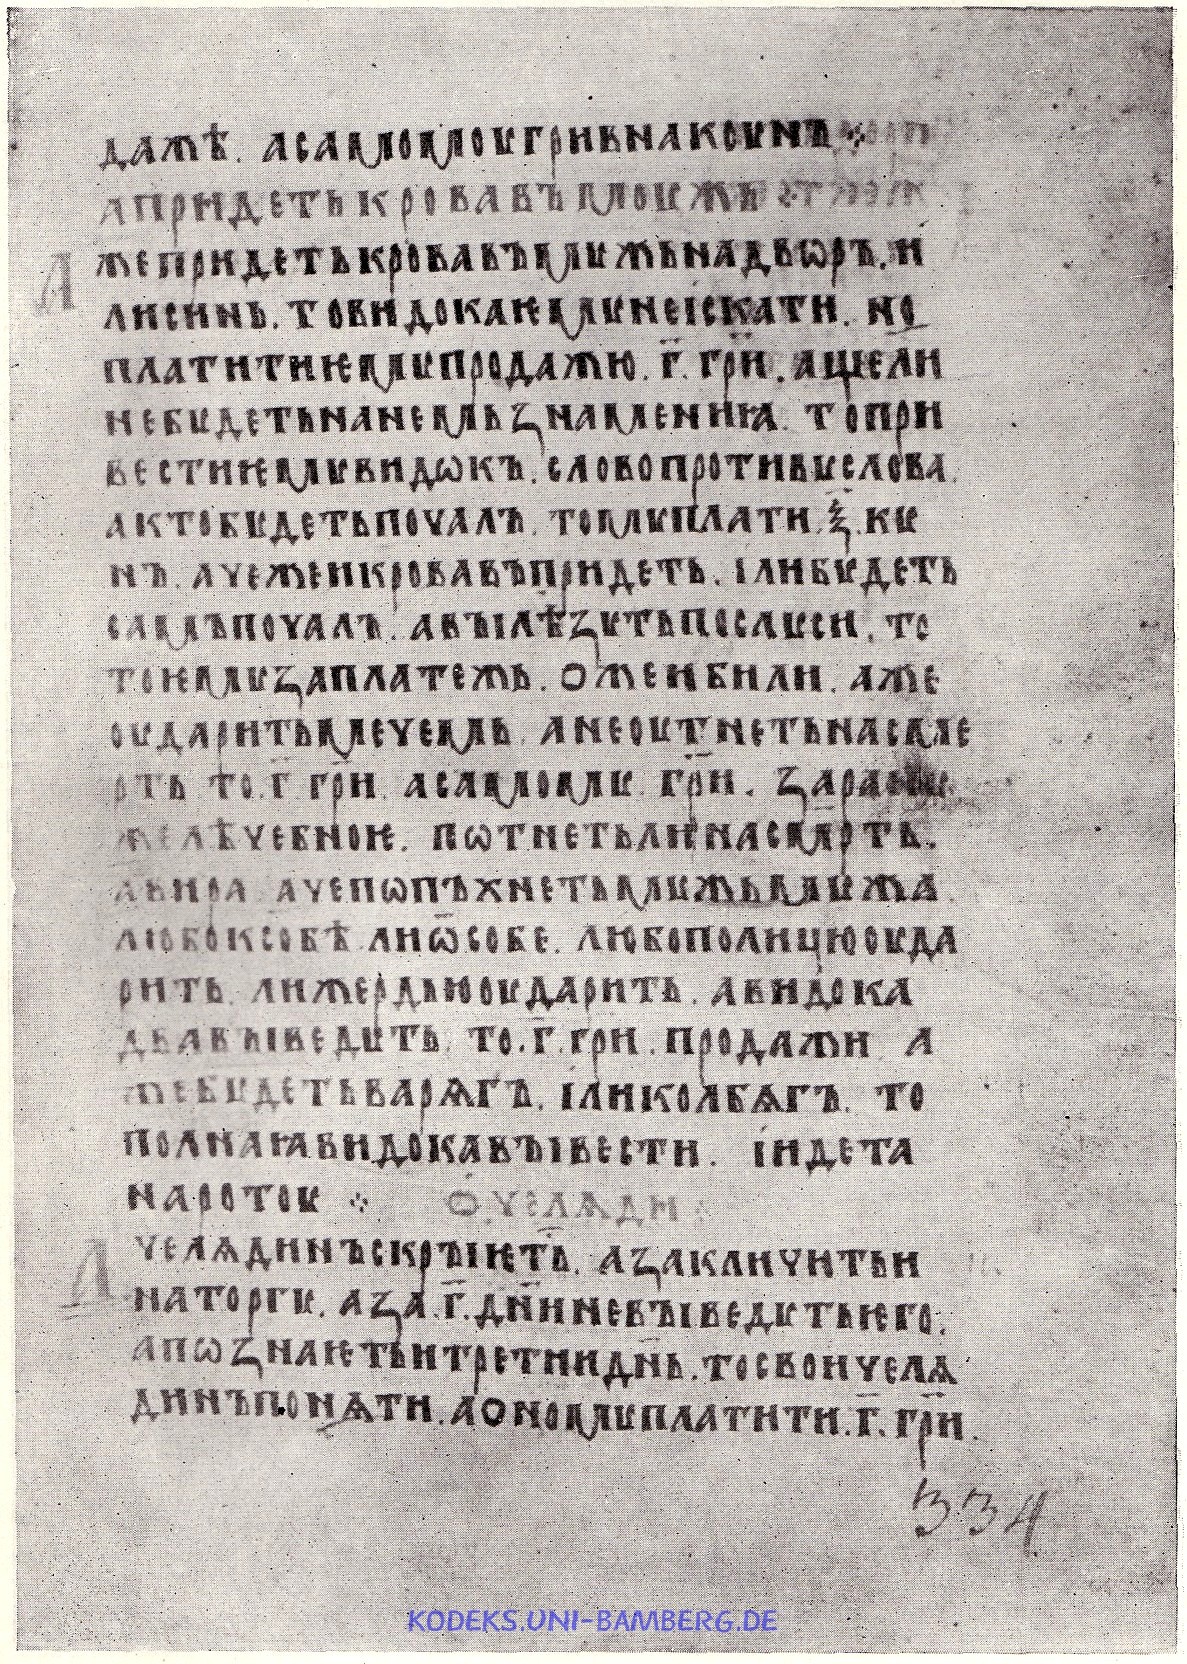 дажѣ. асамомоугривнакоунъ ⁘
апридетькровавъмоужь
А жепридетькровавъмужьнадворъ. и
лисинь. товидокаѥмунеіскати. но
платитиѥмупродажю. г҃. гр҃и. ащели
небудетьнанемьзнамениꙗ. топри
вестиѥмувидѡкъ. словопротивуслова.
актобудетьпочалъ. томуплати ѯ҃. ку
нъ. ачежеикровавъпридеть. ілибудеть
самъпочалъ. авылѣзутьпослуси. то
тоѥмузаплатежь. ожеибили. аже
оударитьмечемь. анеоутнетьнасме
рть то. г҃ гр҃и. асамому. гр҃и. зарану.
желѣчебноѥ. пѡтнетьлинасмрть.
авира ачепѡпъхнетьмужьмужа.
любоксобѣ лиѿсобе. любополицюоуда
рить. лижердьюоударить. авидока
двавыведуть. то. г҃. гри. продажи а
жебудетьварѧгъ. іликолбѧгъ. то
полнаꙗвидокавывести. індета
нароток ⁘ О челѧди
А челѧдинъскрыѥть. азакличитьи
наторгу. аза. г҃. дн҃иневыведутьѥго.
апѡзнаѥтьитретиидн҃ь. тосвоичелѧ
динъпонѧти. аономуплатити. г҃. гр҃и.
334
KODEKS.UNI-BAMBERG.DE